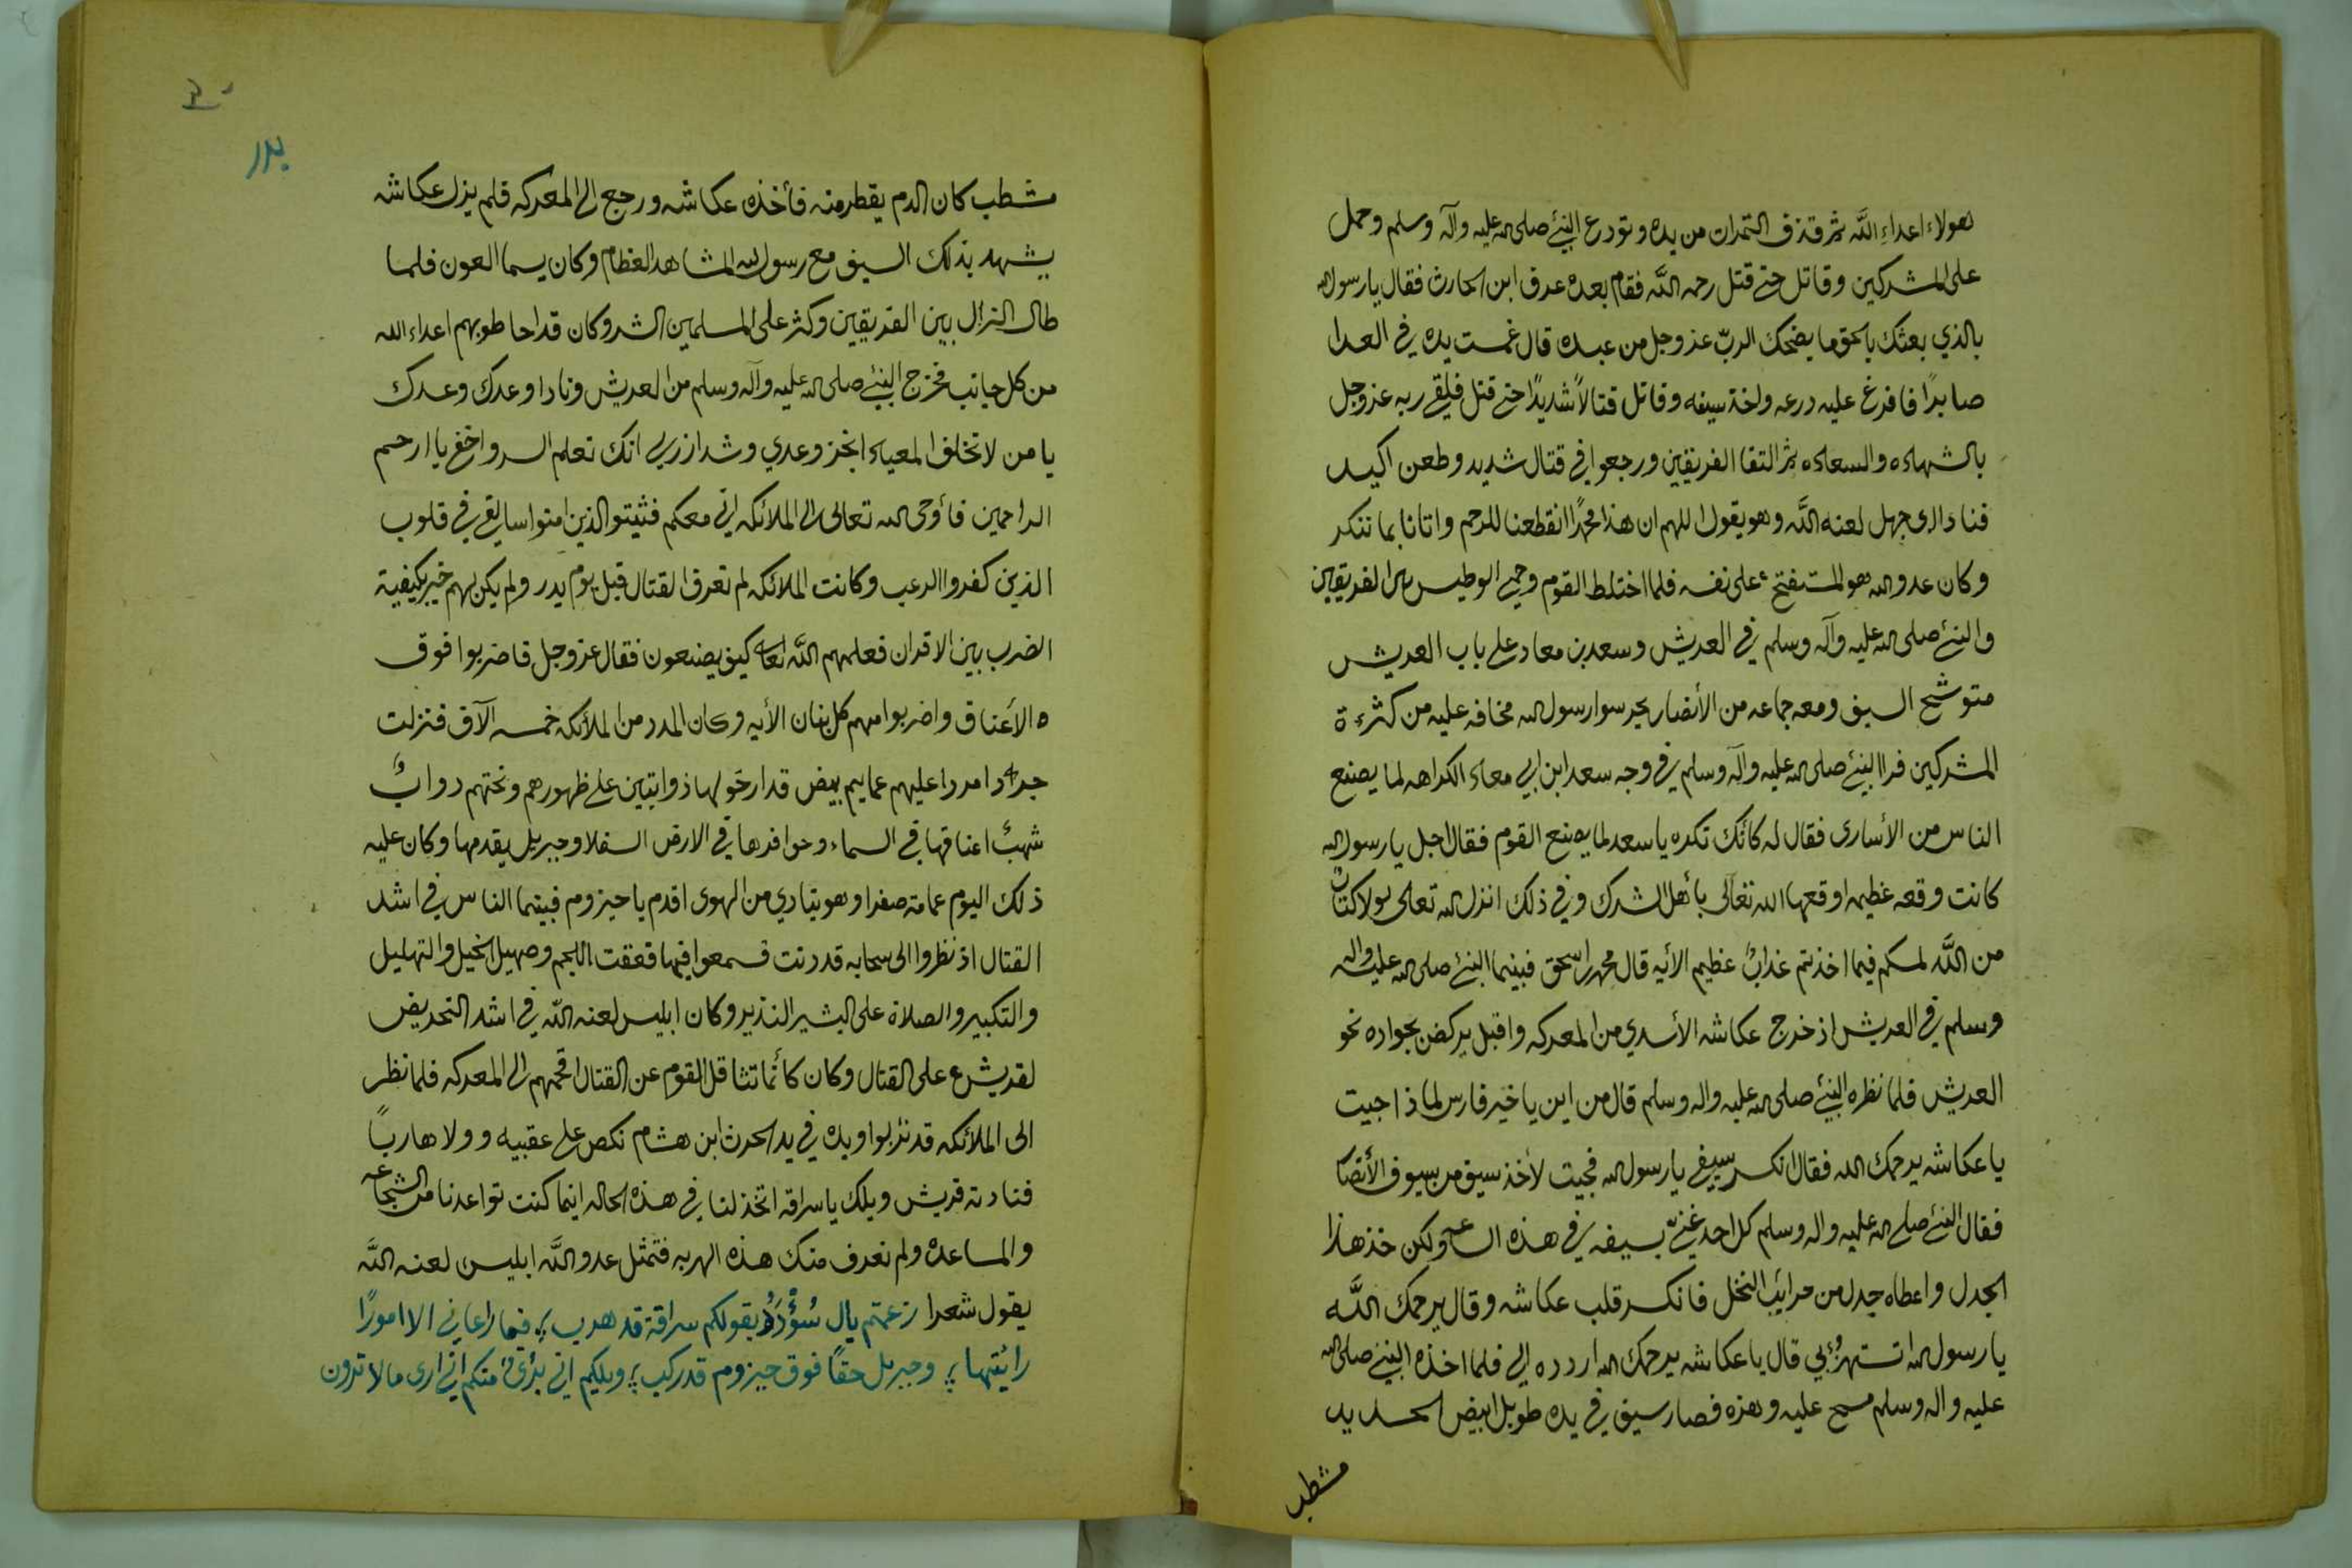 هولاء اعداءِ اللَّه ثم قذف التمرات من يده وتودع النبيّ صلى الله عليه وآله وسلم وحمل
على المشركين وقاتل حتى قتل رحمه اللَّه فقام بعده عوف ابن الحارث فقال يا رسول الله
بالذي بعثك بالحق ما يضحك الربّ عز وجل من عبده قال غمست يده في العدا
صابرًا فافرغ عليه درعه واخذ سيفه وقاتل قتالاً شديدًا حتى قتل فلقي ربه عز وجل
بالشهاده والسعاده ثم التقا الفريقين ورجعوا في قتال شديد وطعن اكيد
فنادا ابي جهل لعنه اللَّه وهو يقول اللهم ان هذا محمدًا انقطعنا للرحم واتانا بما ننكر
وكان عدو الله هو المستفتح على نفسه فلما اختلط القوم وحمي الوطيس بين الفريقين
والنبيّ صلى الله عليه وآله وسلم في العريش وسعد بن معاد على باب العريش
متوشح السيف ومعه جماعه من الأنصار يحرسوا رسول الله مخافه عليه من كثرة
المشركين فرا النبيّ صلى الله عليه وآله وسلم في وجه سعد ابن ابي معاد الكراهه لما يصنع
الناس من الأسارى فقال له كانّك تكره يا سعد لما يصنع القوم فقال اجل يا رسول الله
كانت وقعه عظيمه اوقعها الله تعالى بأهل الشرك وفي ذلك انزل الله تعالى لولا كتابٌ
من اللَّه لمسكم فيما اخذتم عذابٌ عظيم الأيه قال محمد ابن اسحق فبينما النبيّ صلى الله عليه واله
وسلم في العريش اذ خرج عكاشه الأسدي من المعركه واقبل يركض بجواده نحو
العريش فلما نظره النبيّ صلى الله عليه واله وسلم قال من اين يا خير فارس لماذا جيت
يا عكاشه يرحمك الله فقال انكسر سيفي يا رسول الله فجيت لأخذ سيف من سيوف الأنصار
فقال النبيّ صلى الله عليه واله وسلم كل احد غنيّ بسيفه في هذه الساعه ولكن خذ هذا
الجدل واعطاه جدل من جرائب النخل فانكسر قلب عكاشه وقال يرحمك اللَّه
يا رسول الله اتستهزُؤ بي قال يا عكاشه يرحمك الله اردده الي فلما اخذه النبيّ صلى الله
عليه واله وسلم مسح عليه وهزه فصار سيف في يده طويل ابيض الحديد
مشطب
بدر
مشطب كان الدم يقطر منه فأخذه عكاشه ورجع الى المعركه فلم يزل عكاشه
يشهد بذلك السيف مع رسول الله المشاهد العظام وكان يسما العون فلما
طال النزال بين الفريقين وكثر على المسلمين الشر وكان قد احاطو بهم اعداء الله
من كل جانب فخرج النبيّ صلى الله عليه وآله وسلم من العريش ونادا وعدك وعدك
يا من لا تخلف الميعاد انجز وعدي وشد ازري انك تعلم السر واخفى يا ارحم
الراحمين فأوحى الله تعالى الى الملائكه اني معكم فثبتو الذين امنوا سالقي في قلوب
الذين كفروا الرعب وكانت الملائكه لم تعرف القتال قبل يوم بدر ولم يكن لهم خبر بكيفية
الضرب بين الاقران فعلمهم اللَّه تعالى كيف يصنعون فقال عز وجل فاضربوا فوق
ه الأعناق واضربوا منهم كل بنان الأيه وكان المدد من الملائكه خمسه الآف فنزلت
جردًا مردا عليهم عمايم بيض قد ارخو لها ذوابتين على ظهورهم وتحتهم دوابٌ
شهبٌ اعناقها في السماء وحوافرها في الارض السفلا وجبريل يقدمها وكان عليه
ذلك اليوم عمامة صفرا وهو ينادي من الهوى اقدم يا حيزوم فبينما الناس في اشد
القتال اذ نظروا الى سحابه قد دنت فسمعوا فيها قعقت اللجم وصهيل الخيل والتهليل
والتكبير والصلاة على البشير النذير وكان ابليس لعنه اللَّه في اشد التحريض
لقريش على القتال وكان كأنما تثاقل القوم عن القتال اقحمهم الى المعركه فلما نظر
الى الملائكه قد نزلوا ويده في يد الحرث ابن هشام نكص على عقبيه وولا هاربًا
فنادته قريش ويلك يا سراقه اتخذلنا في هذه الحاله اينما كنت تواعدنا من الشجاعه
والمساعده ولم نعرف منك هذه الهربه فتمثل عدو اللَّه ابليس لعنه اللَّه
يقول شعرا زعمتم يال سُؤْدَدُ بقولكم سراقة قد هرب فما راعاني الا امورًا
رائيتها وجبريل حقًا فوق حيزوم قد ركب ويلكم اني برئ منكم اني ارى ما لا ترون